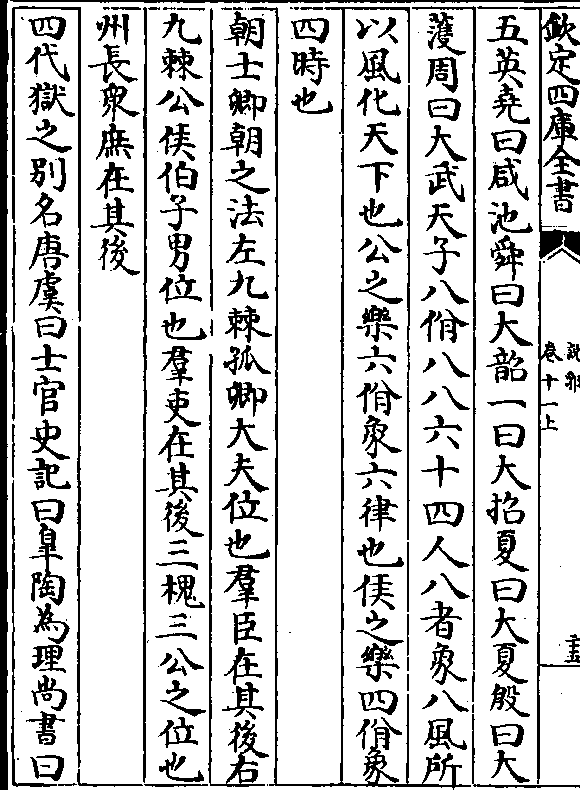 欽定四庫全書
說郛
卷十一上
五英堯曰咸池舜曰大韶一曰大招夏曰大夏殷曰大
蒦周曰大武天子八佾八八六十四人八者象八風所
以風化天下也公之樂六佾象六律也侯之樂四佾象
四時也
朝士卿朝之法左九棘孤卿大夫位也羣臣在其後右
九棘公侯伯子男位也羣吏在其後三槐三公之位也
州長衆庶在其後
四代獄之别名唐虞曰士官史記曰臯陶為理尚書曰